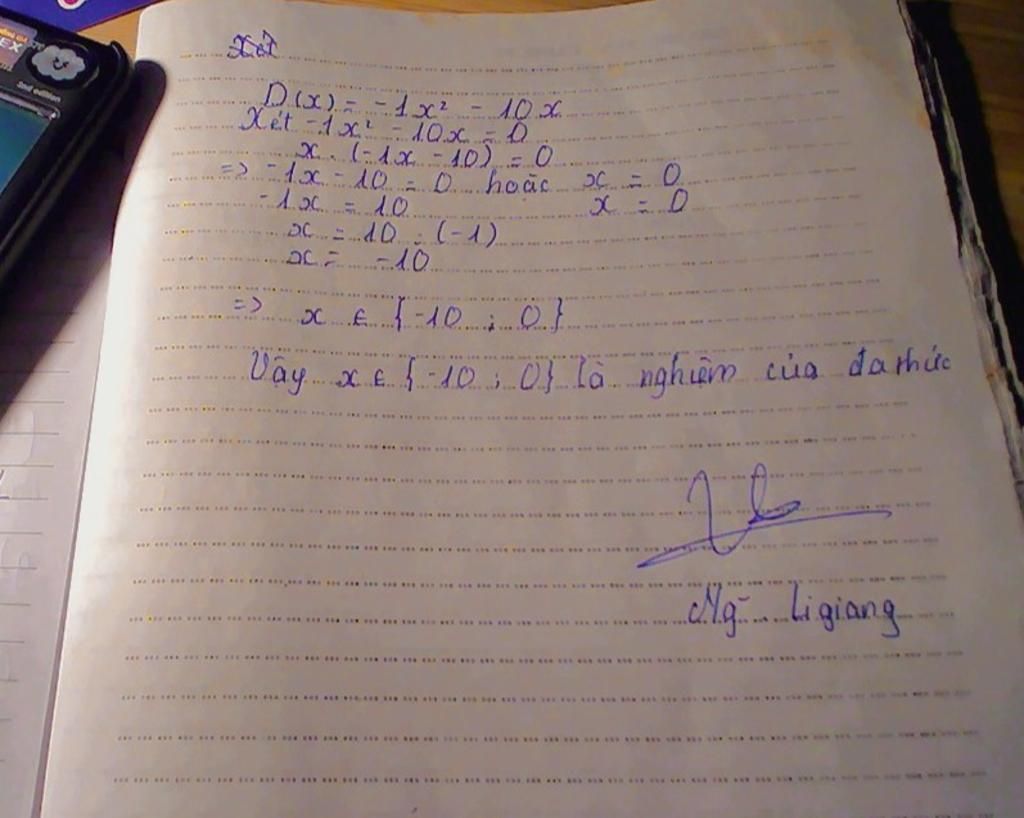 Xét
D(x) = -1x² - 10x
Xét -1x² - 10x = 0
x . (-1x - 10) = 0
=> -1x - 10 = 0 hoặc x = 0
-1x = 10 x = 0
x = 10 : (-1)
x = -10
=> x ∈ {-10 ; 0}
Vậy x ∈ {-10 ; 0} là nghiệm của đa thức
Ng~ Ligiang
2nd edition